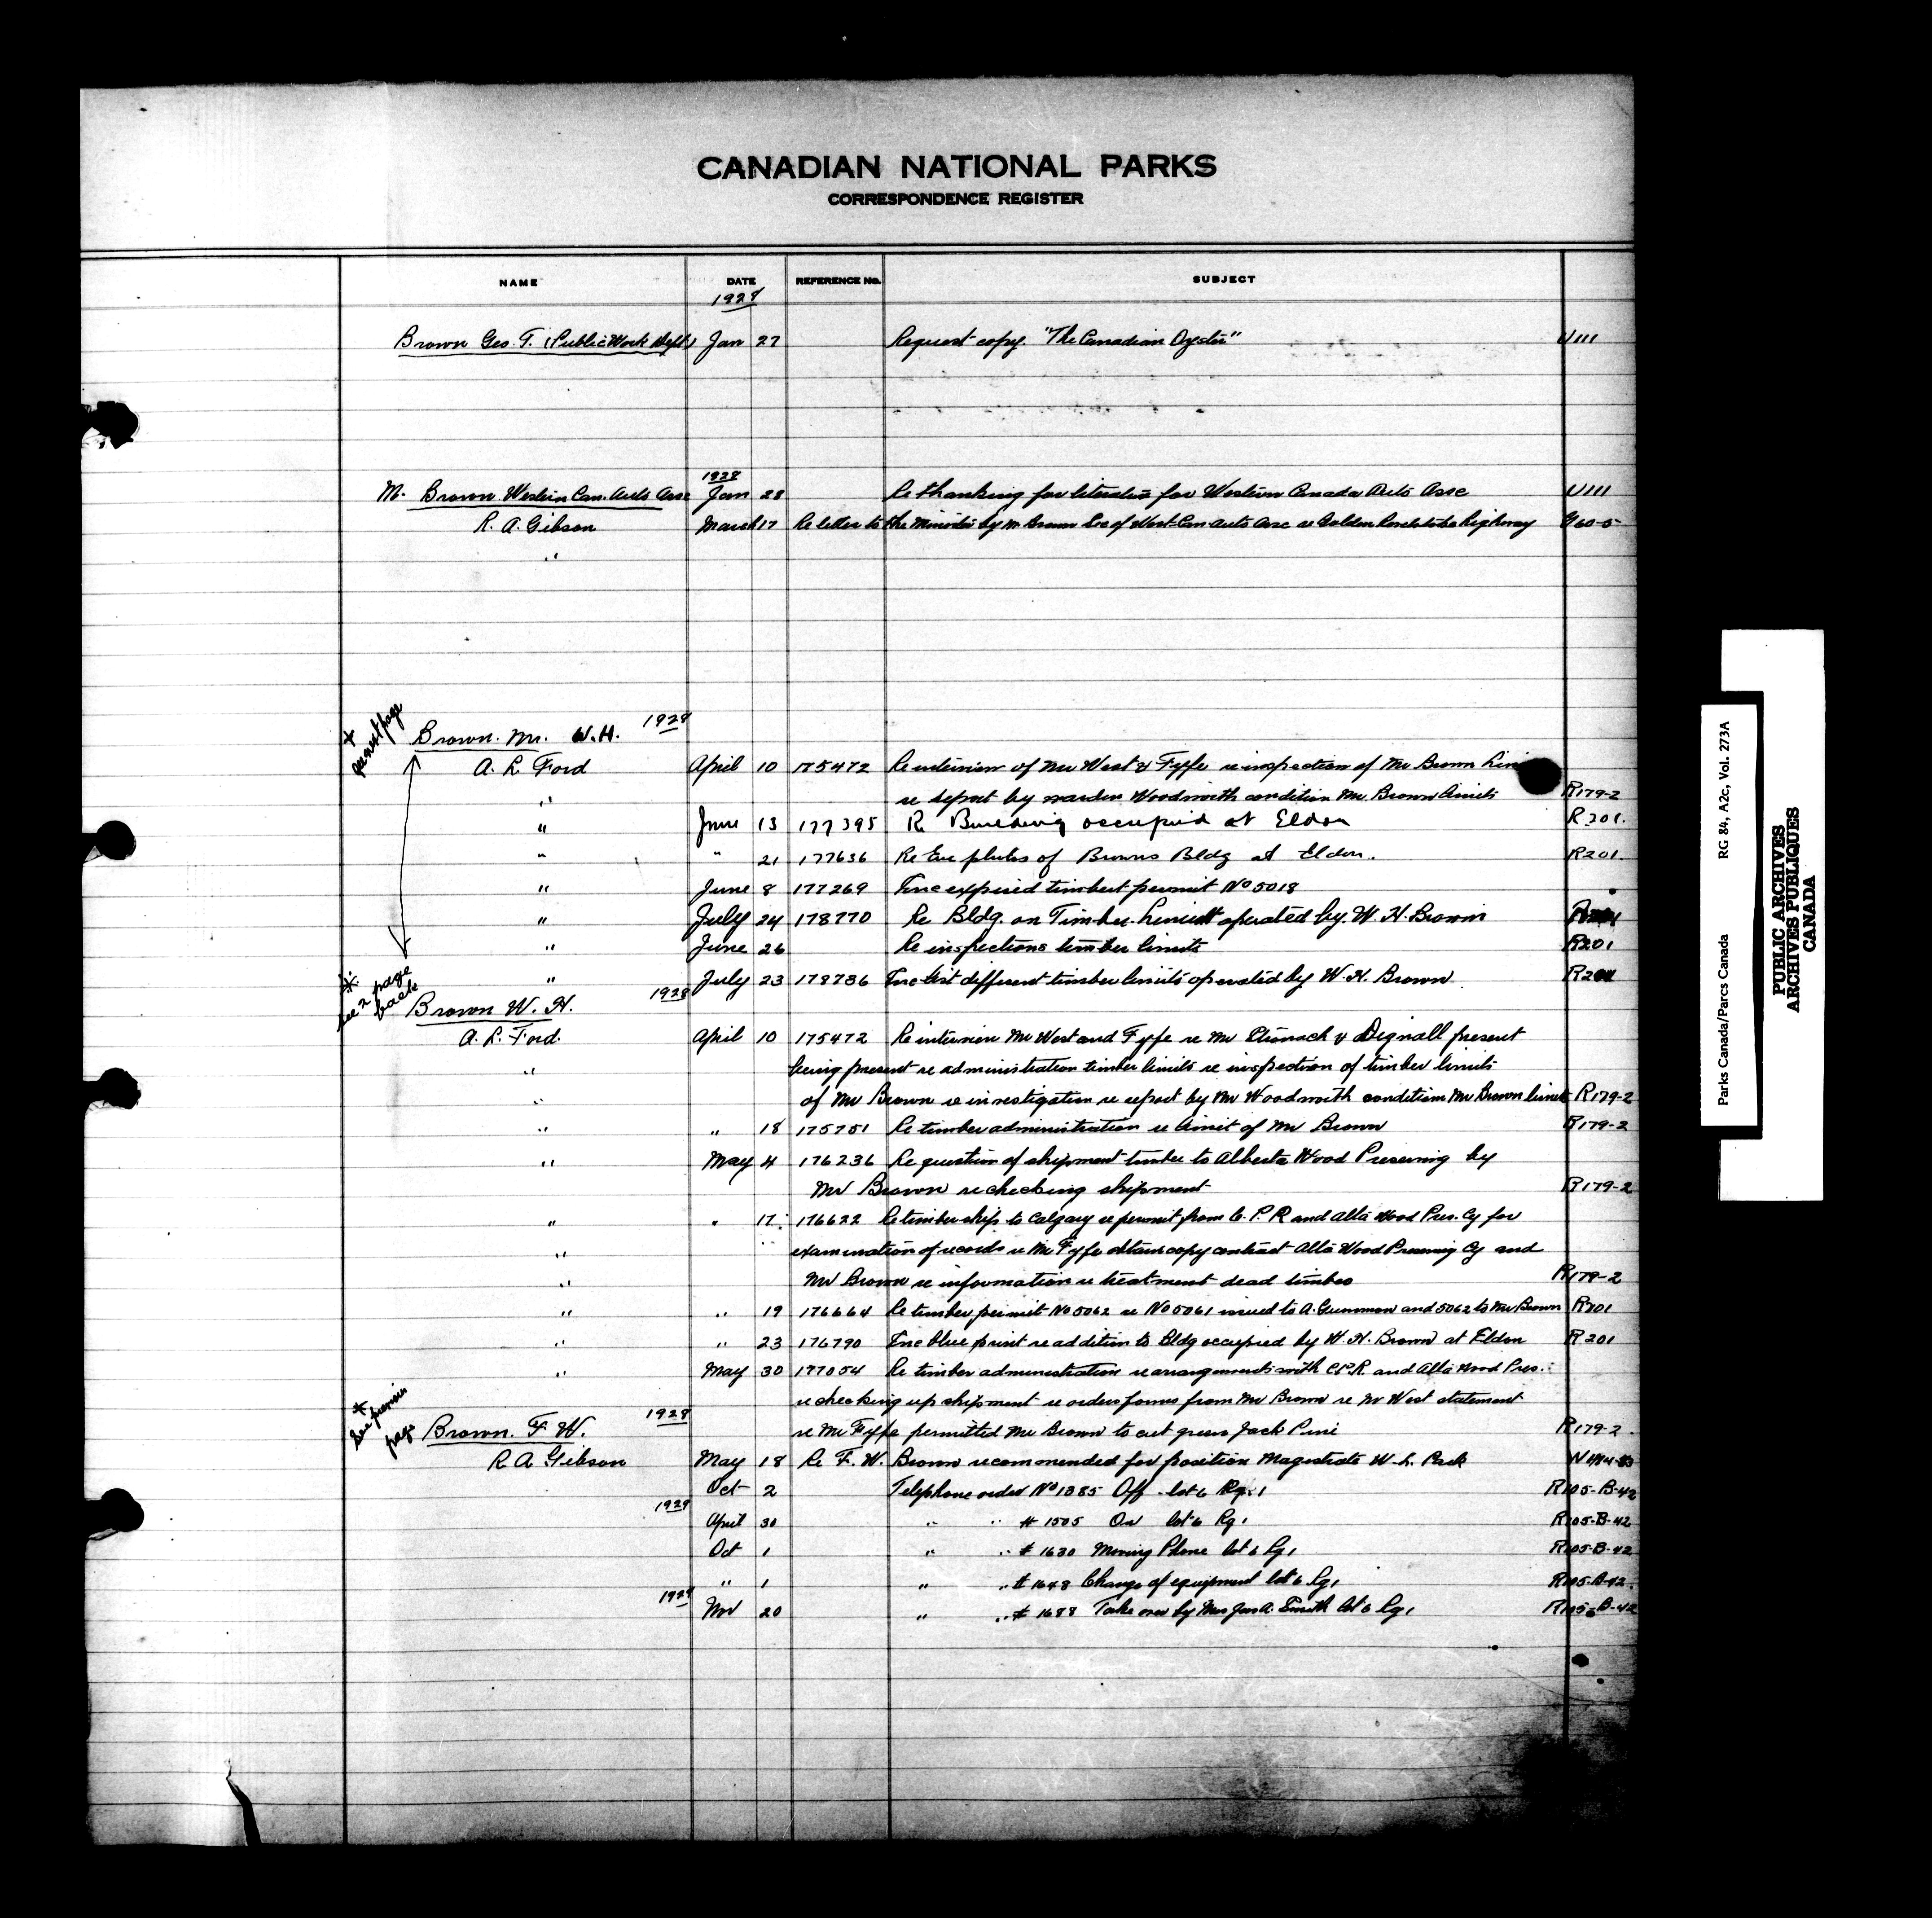 CANADIAN NATIONAL PARKS
CORRESPONDENCE REGISTER
NAME DATE REFERENCE No. SUBJECT
1928
Brown Geo. T. (Public Work Dept) Jan 27 Request copy. "The Canadian Oyster" U111
1928
M. Brown Western Can. Auto Assc Jan 28 Re thanking for literature for Western Canada Auto Assc U111
R. A. Gibson March 17 Re letter to the Minister by M. Brown Sec of West Can Auto Assc re Golden Revelstoke highway G60-5
"
* see next page
Brown. Mr. W.H. 1928
A. L. Ford April 10 175472 Re interview of Mr West & Fyfe re inspection of Mr Brown
" re report by warden Woodworth condition Mr. Brown limits R179-2
" June 13 177395 Re Building occupied at Eldon R201.
" " 21 177636 Re Enc photos of Browns Bldg at Eldon. R201.
" June 8 177269 Enc expired timber permit No 5018
" July 24 178770 Re Bldg. on Timber limit operated by W. H. Brown
" June 26 Re inspections timber limits R201
" July 23 178736 Enc list different timber limits operated by W. H. Brown R201
* see 2 page back
Brown W. H. 1928
A. L. Ford. April 10 175472 Re interview Mr West and Fyfe re Mr Stronach & Dignall present
" being present re administration timber limits re inspection of timber limits
" of Mr Brown re investigation re report by Mr Woodworth condition Mr Brown limits R179-2
" " 18 175751 Re timber administration re limit of Mr Brown R179-2
" May 4 176236 Re question of shipment timber to Alberta Wood Preserving by
Mr Brown re checking shipment R179-2
" " 17 176622 Re timber ship to Calgary re permit from C. P. R and Alta Wood Pres. Cy for
" examination of records re Mr Fyfe obtain copy contract Alta Wood Preserving Cy and
" Mr Brown re information re treatment dead timber R179-2
" " 19 176664 Re timber permit No 5062 re No 5061 issued to A. and 5062 to Mr Brown R201
" " 23 176790 Enc blue print re addition to Bldg occupied by W. H. Brown at Eldon R201
" May 30 177054 Re timber administration re arrangements with C.P.R. and Alta Wood Pres.
re checking up shipment re orders forms from Mr Brown re Mr West statement
* See previous page
Brown. F. W. 1928 re Mr Fyfe permitted Mr Brown to cut green Jack Pine R179-2.
R A Gibson May 18 Re F. W. Brown recommended for position Magistrate W. L. Park
Oct 2 Telephone order No 1385 Off lot 6 Rg. 1 R105-B-42
1929
April 30 " " # 1505 On lot 6 Rg 1 R105-B-42
Oct 1 " " # 1630 Moving Phone lot 6 Rg 1 R105-B-42
" 1 " " # 1648 Change of equipment lot 6 Rg 1 R105-B-42.
1929
Nov 20 " " # 1688 Take over by Mrs Jas A. Smith lot 6 Rg 1 R105-B-42
Parks Canada/Parcs Canada RG 84, A2c, Vol. 273A
PUBLIC ARCHIVES
ARCHIVES PUBLIQUES
CANADA